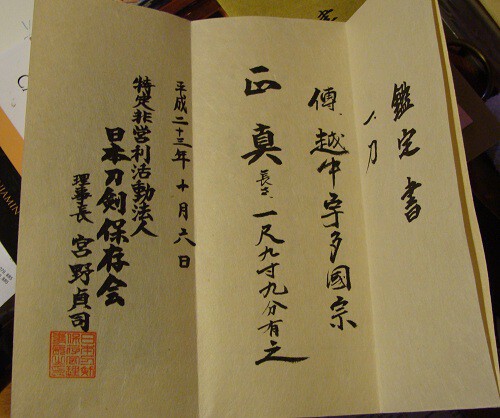 鑑定書
刀
傳 越中宇多國宗
正真 長さ 一尺九寸九分有之
平成二十三年十月六日
特定非営利活動法人
日本刀剣保存会
理事長 宮野貞司